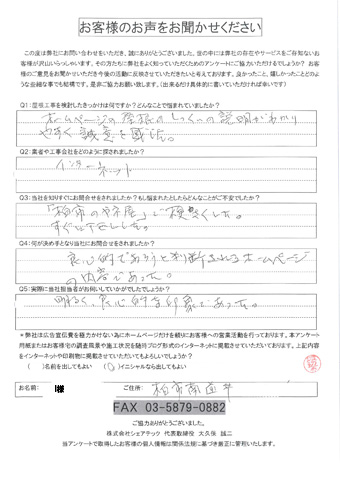 お客様のお声をお聞かせください
この度は弊社にお問い合わせをいただき、誠にありがとうございました。世の中には弊社の存在やサービスをご存知ないお
客様が沢山いらっしゃいます。その方たちに弊社をよく知っていただくためのアンケートにご協力いただけるでしょうか?お
客様のご意見をお聞かせいただき今後の活動に反映させていきたいと考えております。良かったこと、嬉しかったことどのよ
うな些細な事でも結構です。是非ご協力お願い致します。(出来るだけ具体的に書いていただければ幸いです)
Q1:屋根工事を検討したきっかけは何ですか?どんなことで悩まれていましたか?
ホームページの屋根のしっくいの説明がわかり
やすく誠意を感じた。
Q2:業者や工事会社をどのように探されましたか?
インターネット
Q3:当社を知りすぐにお問合せをされましたか?もし悩まれたとしたらどんなことがご不安でしたか?
「柏市のやね屋」で検索しました。
すぐに
Q4:何が決め手となり当社にお問合せをされましたか?
良心的であろうと判断されるホームページ
の内容であった。
Q5:実際に当社担当者がお伺いしていかがでしたでしょうか?
明るく、良心的な印象であった。
*弊社は広告宣伝費を極力かけない為にホームページだけを頼りにお客様への営業活動を行っております。本アンケート
用紙またはお客様宅の調査風景や施工状況を随時ブログ形式のインターネットに掲載させていただいております。上記内容
をインターネットや印刷物に掲載させていただいてもよろしいでしょうか?
( )名前を出してもよい (○)イニシャルなら出してもよい
お名前: I様 ご住所: 柏市南逆井
FAX 03-5879-0882
ご協力ありがとうございました。
株式会社シェアテック 代表取締役 大久保 誠二
当アンケートで取得したお客様の個人情報は関係法規に基づき厳正に管理いたします。